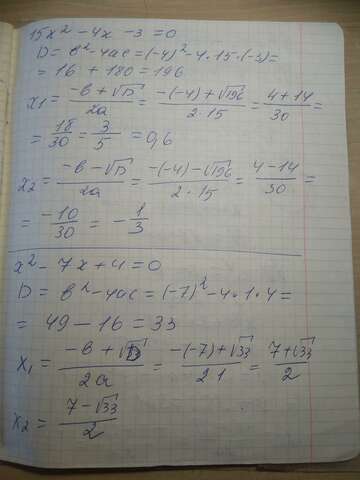 15x² - 4x - 3 = 0
D = b² - 4ac = (-4)² - 4·15·(-3) =
= 16 + 180 = 196
x₁ = (-b + √D)/2a = (-(-4) + √196)/(2·15) = (4 + 14)/30 =
= 18/30 = 3/5 = 0,6
x₂ = (-b - √D)/2a = (-(-4) - √196)/(2·15) = (4 - 14)/30 =
= -10/30 = -1/3
x² - 7x + 4 = 0
D = b² - 4ac = (-7)² - 4·1·4 =
= 49 - 16 = 33
x₁ = (-b + √D)/2a = (-(-7) + √33)/(2·1) = (7 + √33)/2
x₂ = (7 - √33)/2